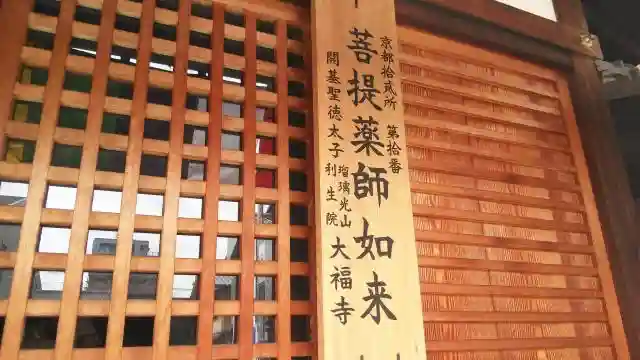 京都拾弐所 第拾番
菩提薬師如来
開基聖徳太子
瑠璃光山
利生院
大福寺